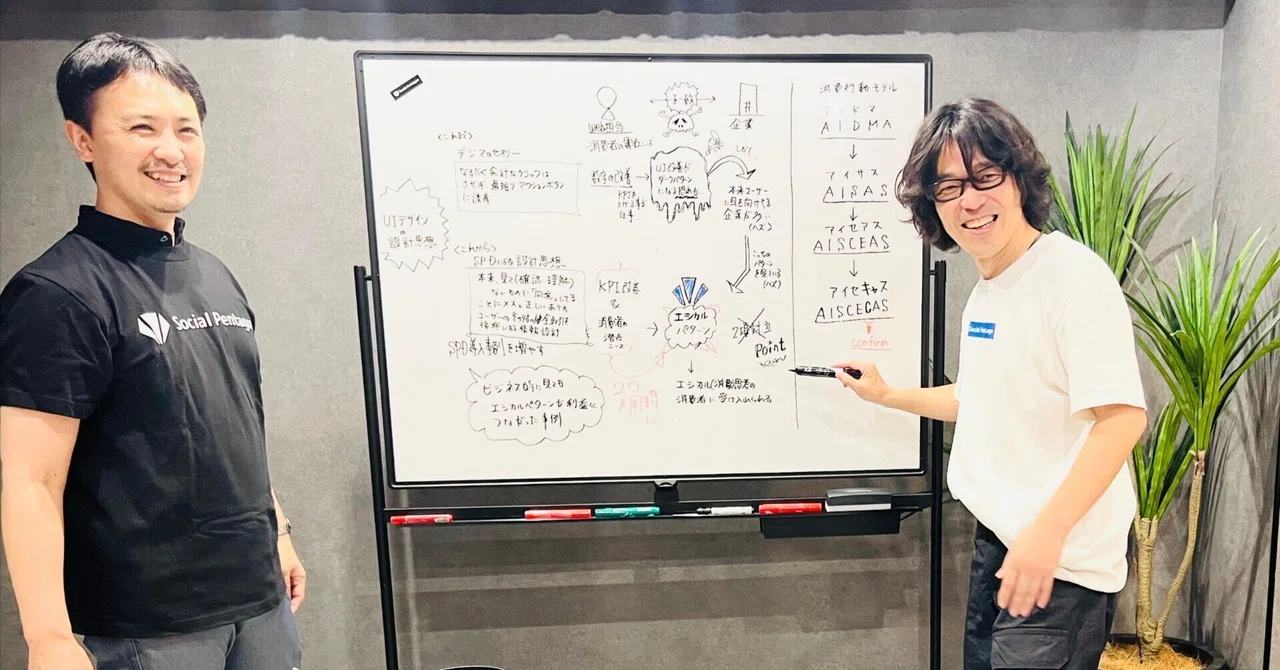 Social Pentago
UIデザイン
の
設計思想
<これまで>
デジマのセオリー
なるべく余計なクリックは
させず 最短でアクションボタン
に誘導
<これから>
SPDによる設計思想
本来、見て(確認、理解)
ないものに「同意」してる
SPD導入事例を増やす
ビジネス的に見ても
エシカルパターンが利益に
つながった事例
Web担当
消費者の
数字の改善
KPIを
上げる事が
仕事
UI改善が
ダークパターン
になる恐れも
企業
しかし
本来ユーザー
に目を向けてる
企業が多い
(ハズ)
こっちの
パターン
を見ている
(ハズ)
KPI改善
&
消費者の
潜在
ニーズ
エシカル
パターン
2項対立
Point
エシカル消費思考の
消費者に受け入れられる
2つ
を同時
に
消費行動モデル
アイドマ
AIDMA
アイサス
AISAS
アイセアス
AISCEAS
アイセキャス
AISCECAS
confirm
Social Pentago